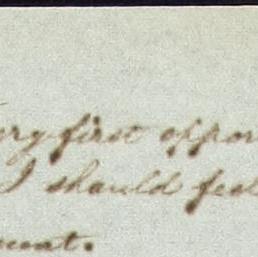 ery first oppor
I should feel
ment.